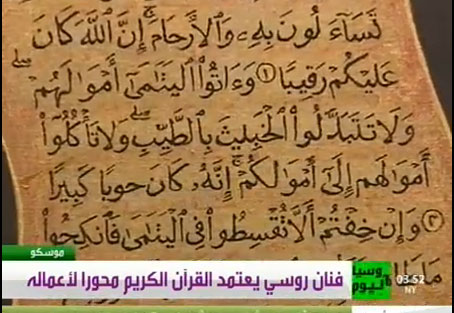 تَسَآءَلُونَ بِهِۦ وَٱلْأَرْحَامَ ۚ إِنَّ ٱللَّهَ كَانَ
عَلَيْكُمْ رَقِيبًا ١ وَءَاتُوا۟ ٱلْيَتَٰمَىٰٓ أَمْوَٰلَهُمْ ۖ
وَلَا تَتَبَدَّلُوا۟ ٱلْخَبِيثَ بِٱلطَّيِّبِ ۖ وَلَا تَأْكُلُوٓا۟
أَمْوَٰلَهُمْ إِلَىٰٓ أَمْوَٰلِكُمْ ۚ إِنَّهُۥ كَانَ حُوبًا كَبِيرًا
٢ وَإِنْ خِفْتُمْ أَلَّا تُقْسِطُوا۟ فِى ٱلْيَتَٰمَىٰ فَٱنكِحُوا۟
مَا
موسكو
فنان روسي يعتمد القرآن الكريم محورا لأعماله
روسيا اليوم
03:52
NY